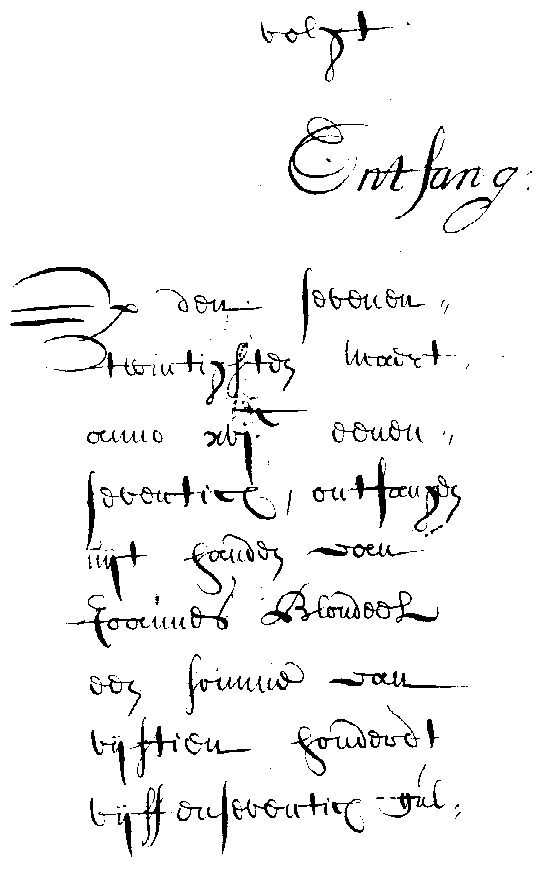 volgt
Entfang:
Den seven en„
twintichsten maert
anno xvjc eenen„
seventich, ontfangen
uijt handen van
Joannes Blondeel
een somme van
vijftien hondert
vijff en seventich gul: